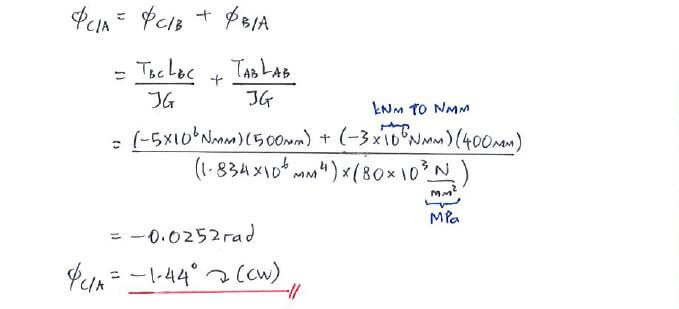 ϕC/A = ϕC/B + ϕB/A
= TBC LBC / JG + TAB LAB / JG
kNm TO Nmm
= (-5×10⁶ Nmm)(500mm) + (-3×10⁶ Nmm)(400mm) / (1.834×10⁶ mm⁴) × (80×10³ N/mm²)
MPa
= -0.0252 rad
ϕC/A = -1.44° ↷ (CW)